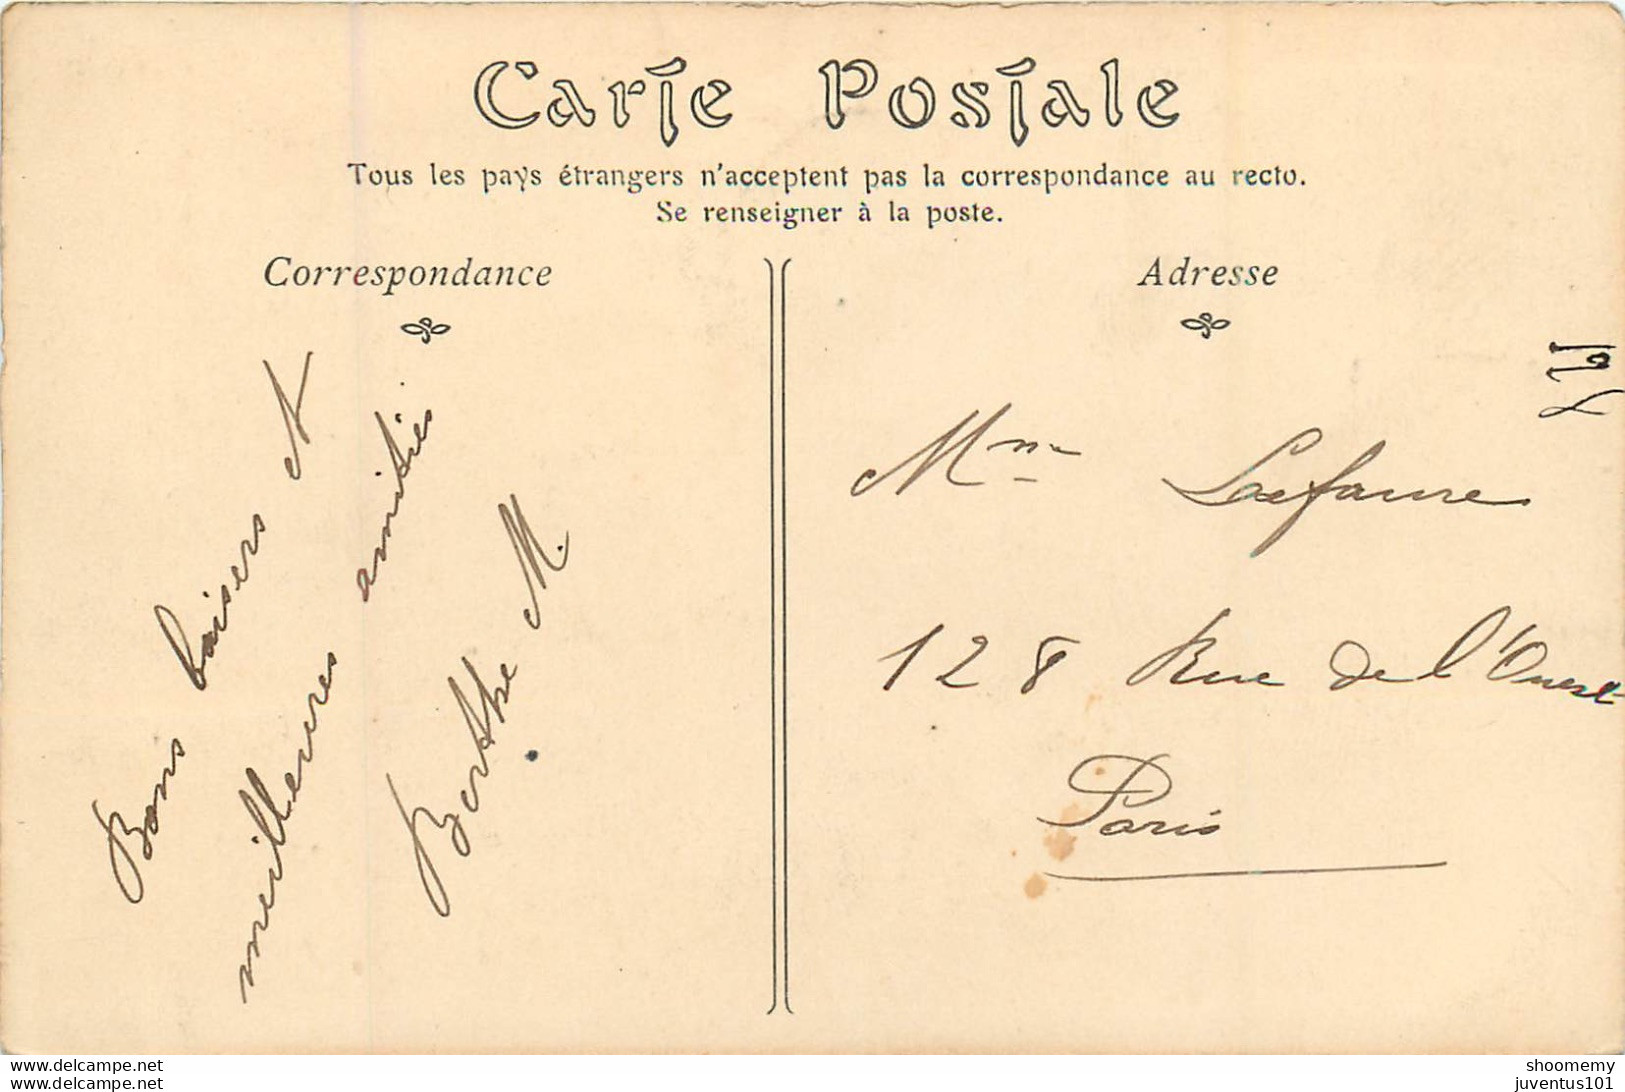 Carte Postale
Tous les pays étrangers n'acceptent pas la correspondance au recto.
Se renseigner à la poste.
Correspondance
Bons baisers &
meilleures amitiés.
Berthe M.
Adresse
Mme Lafaure
128 Rue de l'Ouest
Paris
www.delcampe.net
www.delcampe.net
shoomemy
juventus101